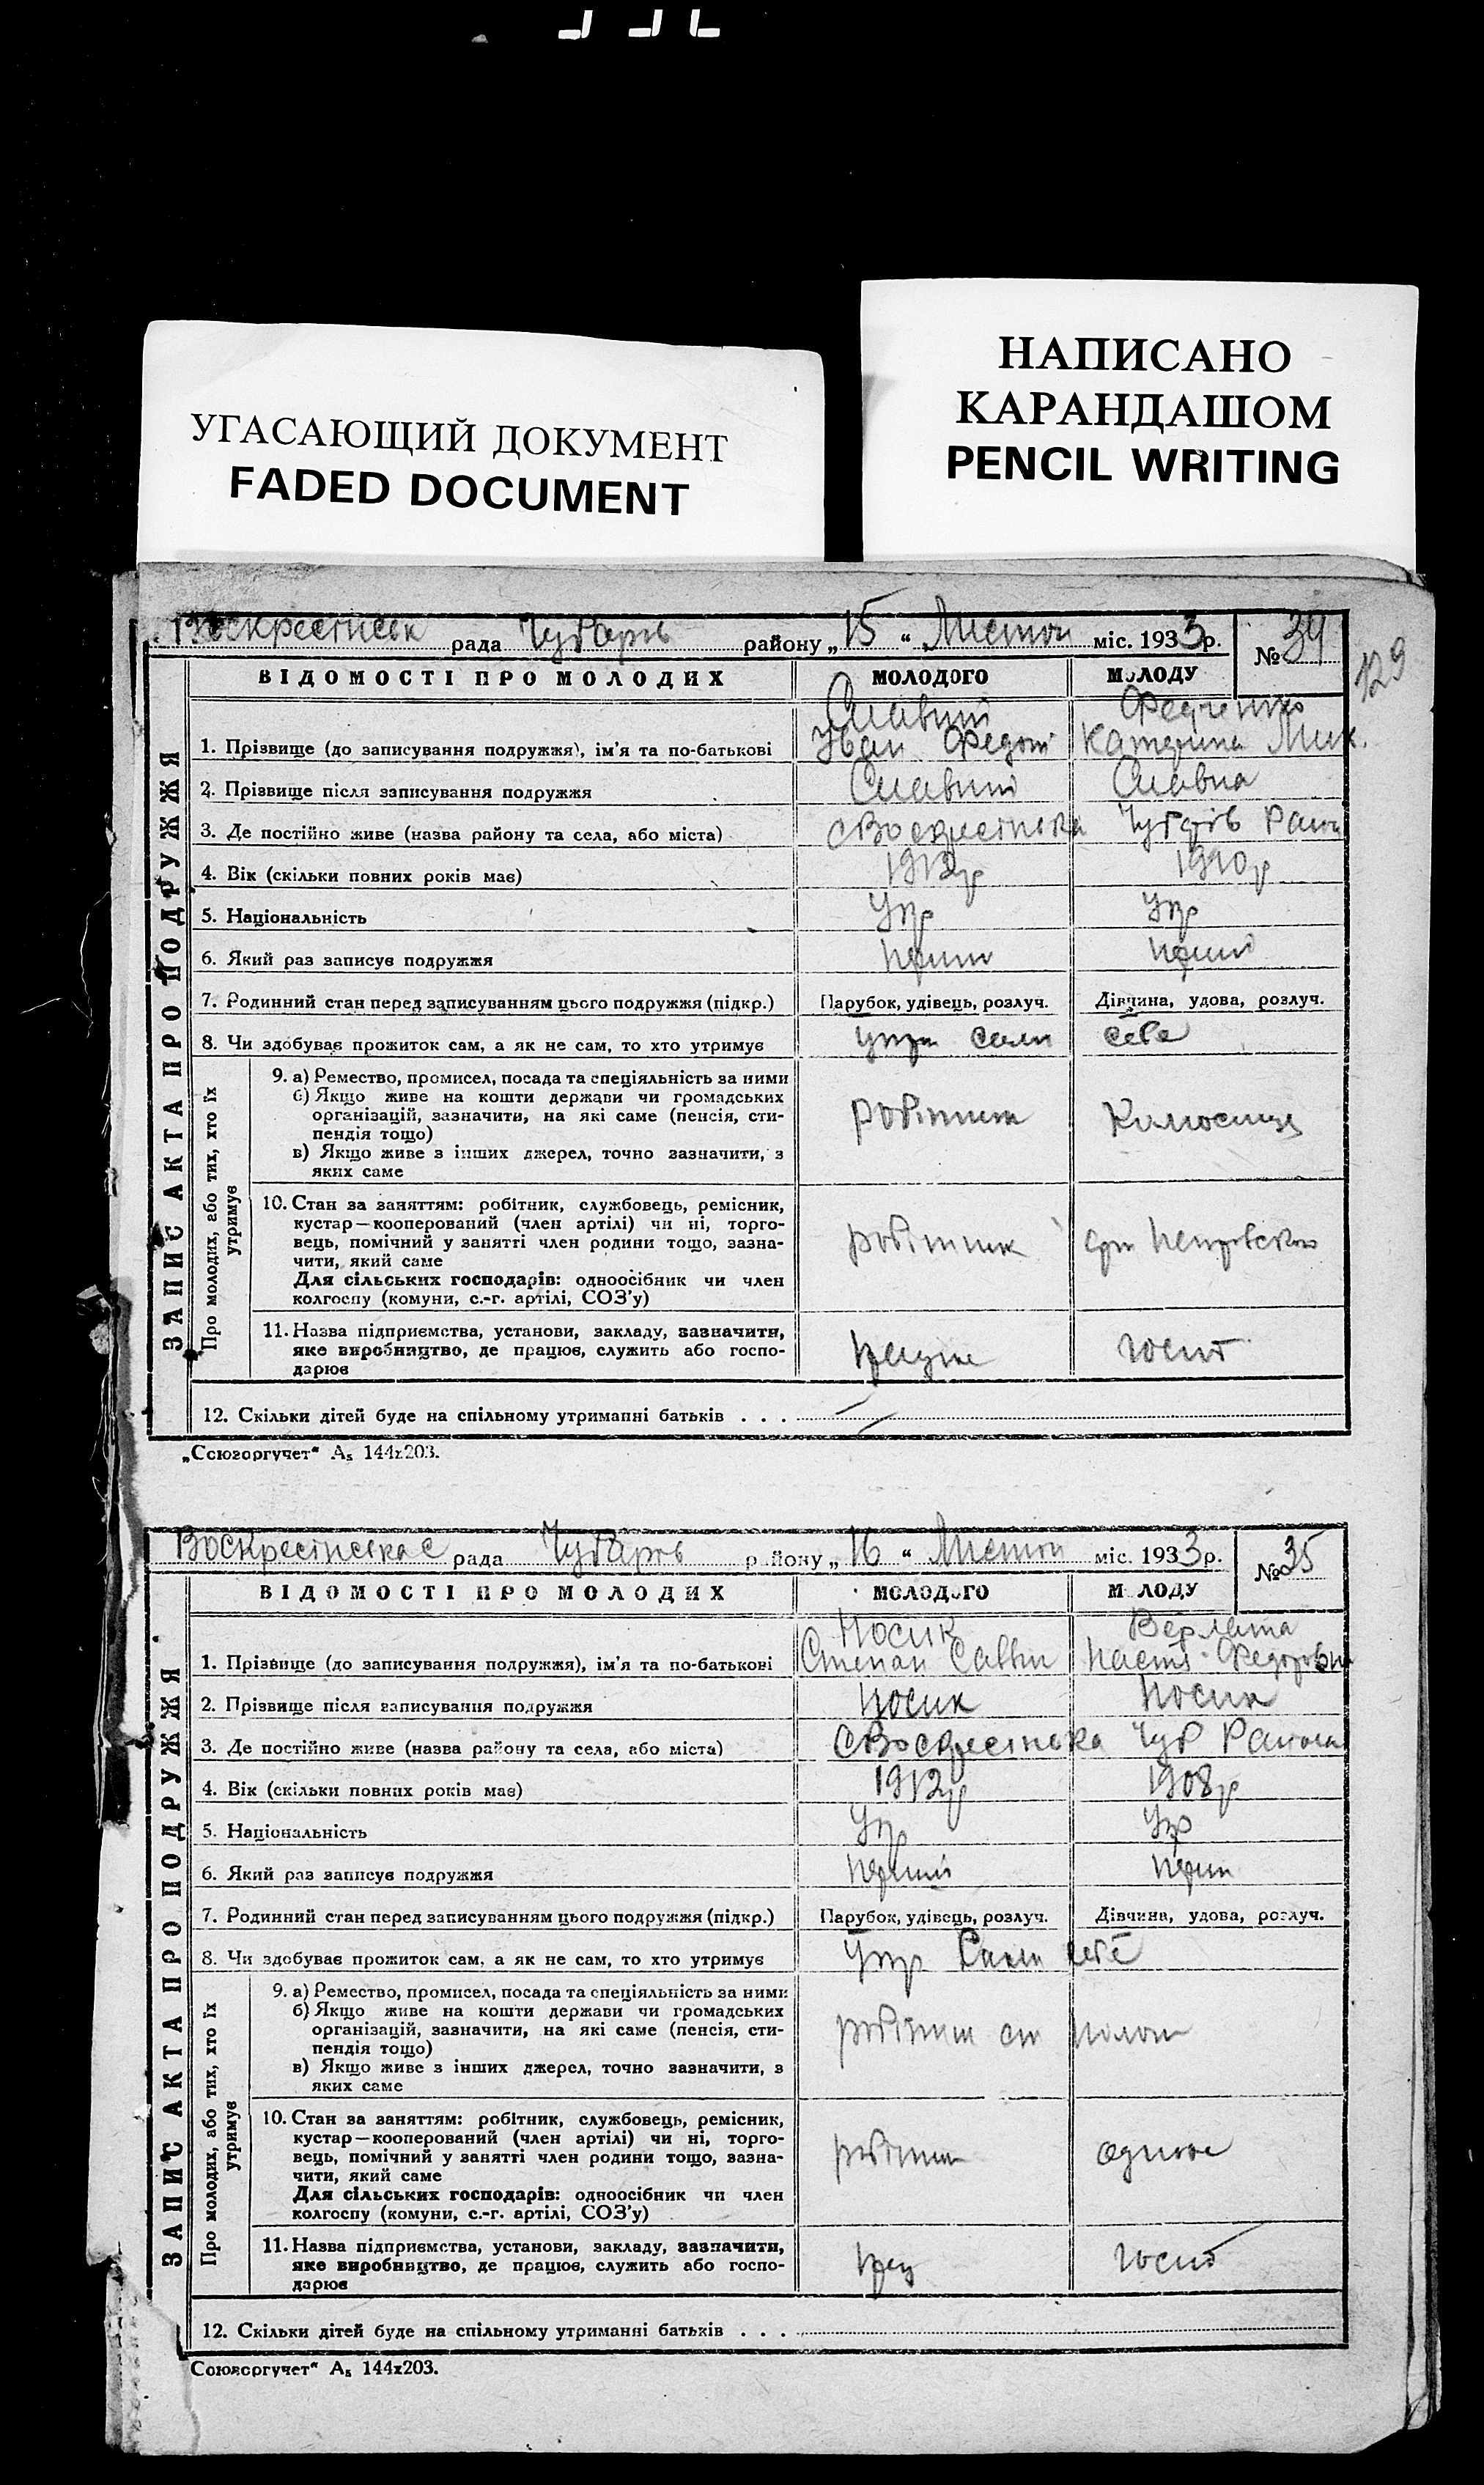 УГАСАЮЩИЙ ДОКУМЕНТ
FADED DOCUMENT
НАПИСАНО
КАРАНДАШОМ
PENCIL WRITING
рада Чубарів району „15“ Листоп міс. 1933р. № 34
129
ВІДОМОСТІ ПРО МОЛОДИХ МОЛОДОГО МОЛОДУ
ЗАПИС АКТА ПРО ПОДРУЖЖЯ
Федченко
1. Прізвище (до записування подружжя), ім'я та по-батькові Іван Федот Катерина Мик.
2. Прізвище після записування подружжя
3. Де постійно живе (назва району та села, або міста) с Воскресінська Чубарів Район
4. Вік (скільки повних років має) 1912р 1910р
5. Національність Укр Укр
6. Який раз записує подружжя перший перший
7. Родинний стан перед записуванням цього подружжя (підкр.) Парубок, удівець, розлуч. Дівчина, удова, розлуч.
8. Чи здобуває прожиток сам, а як не сам, то хто утримує сами себе
Про молодих, або тих, хто їх утримує
9. а) Ремество, промисел, посада та спеціяльність за ними
б) Якщо живе на кошти держави чи громадських
організацій, зазначити, на які саме (пенсія, сти-
пендія тощо) робітник
в) Якщо живе з інших джерел, точно зазначити, з
яких саме
10. Стан за заняттям: робітник, службовець, ремісник,
кустар—кооперований (член артілі) чи ні, торго-
вець, помічний у занятті член родини тощо, зазна-
чити, який саме робітник арт Петровского
Для сільських господарів: одноосібник чи член
колгоспу (комуни, с.-г. артілі, СОЗ'у)
11. Назва підприємства, установи, закладу, зазначити,
яке виробництво, де працює, служить або госпо-
дарює
12. Скільки дітей буде на спільному утриманні батьків . . .
„Союзоргучет“ А₅ 144х203.
рада Чубарів району „16“ Листоп міс. 1933р. № 35
ВІДОМОСТІ ПРО МОЛОДИХ МОЛОДОГО МОЛОДУ
ЗАПИС АКТА ПРО ПОДРУЖЖЯ
Носик Верлата
1. Прізвище (до записування подружжя), ім'я та по-батькові Степан Савви Настя Федоровна
2. Прізвище після записування подружжя Носик Носик
3. Де постійно живе (назва району та села, або міста) с Воскресінська Чуб Района
4. Вік (скільки повних років має) 1912р 1908р
5. Національність Укр Укр
6. Який раз записує подружжя перший перш
7. Родинний стан перед записуванням цього подружжя (підкр.) Парубок, удівець, розлуч. Дівчина, удова, розлуч.
8. Чи здобуває прожиток сам, а як не сам, то хто утримує Сами себе
Про молодих, або тих, хто їх утримує
9. а) Ремество, промисел, посада та спеціяльність за ними
б) Якщо живе на кошти держави чи громадських
організацій, зазначити, на які саме (пенсія, сти-
пендія тощо)
в) Якщо живе з інших джерел, точно зазначити, з
яких саме
10. Стан за заняттям: робітник, службовець, ремісник,
кустар—кооперований (член артілі) чи ні, торго-
вець, помічний у занятті член родини тощо, зазна-
чити, який саме
Для сільських господарів: одноосібник чи член
колгоспу (комуни, с.-г. артілі, СОЗ'у)
11. Назва підприємства, установи, закладу, зазначити,
яке виробництво, де працює, служить або госпо-
дарює
12. Скільки дітей буде на спільному утриманні батьків . . .
Союзоргучет“ А₅ 144х203.